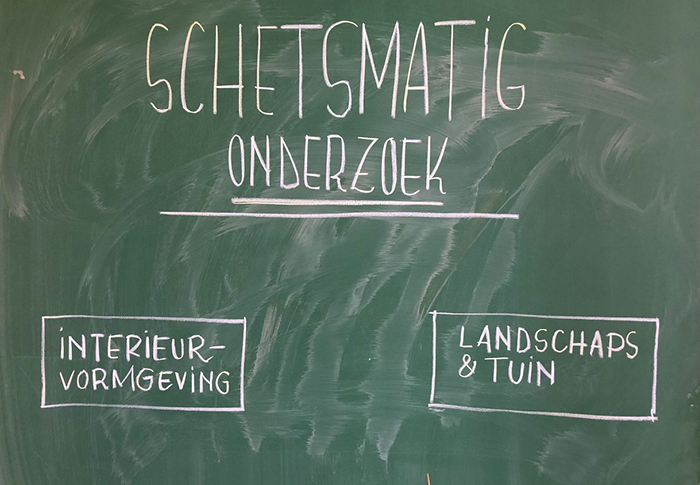 SCHETSMATiG
ONDERZOEK
iNTERiEUR-
VORMGEViNG
LANDSCHAPS
& TUiN